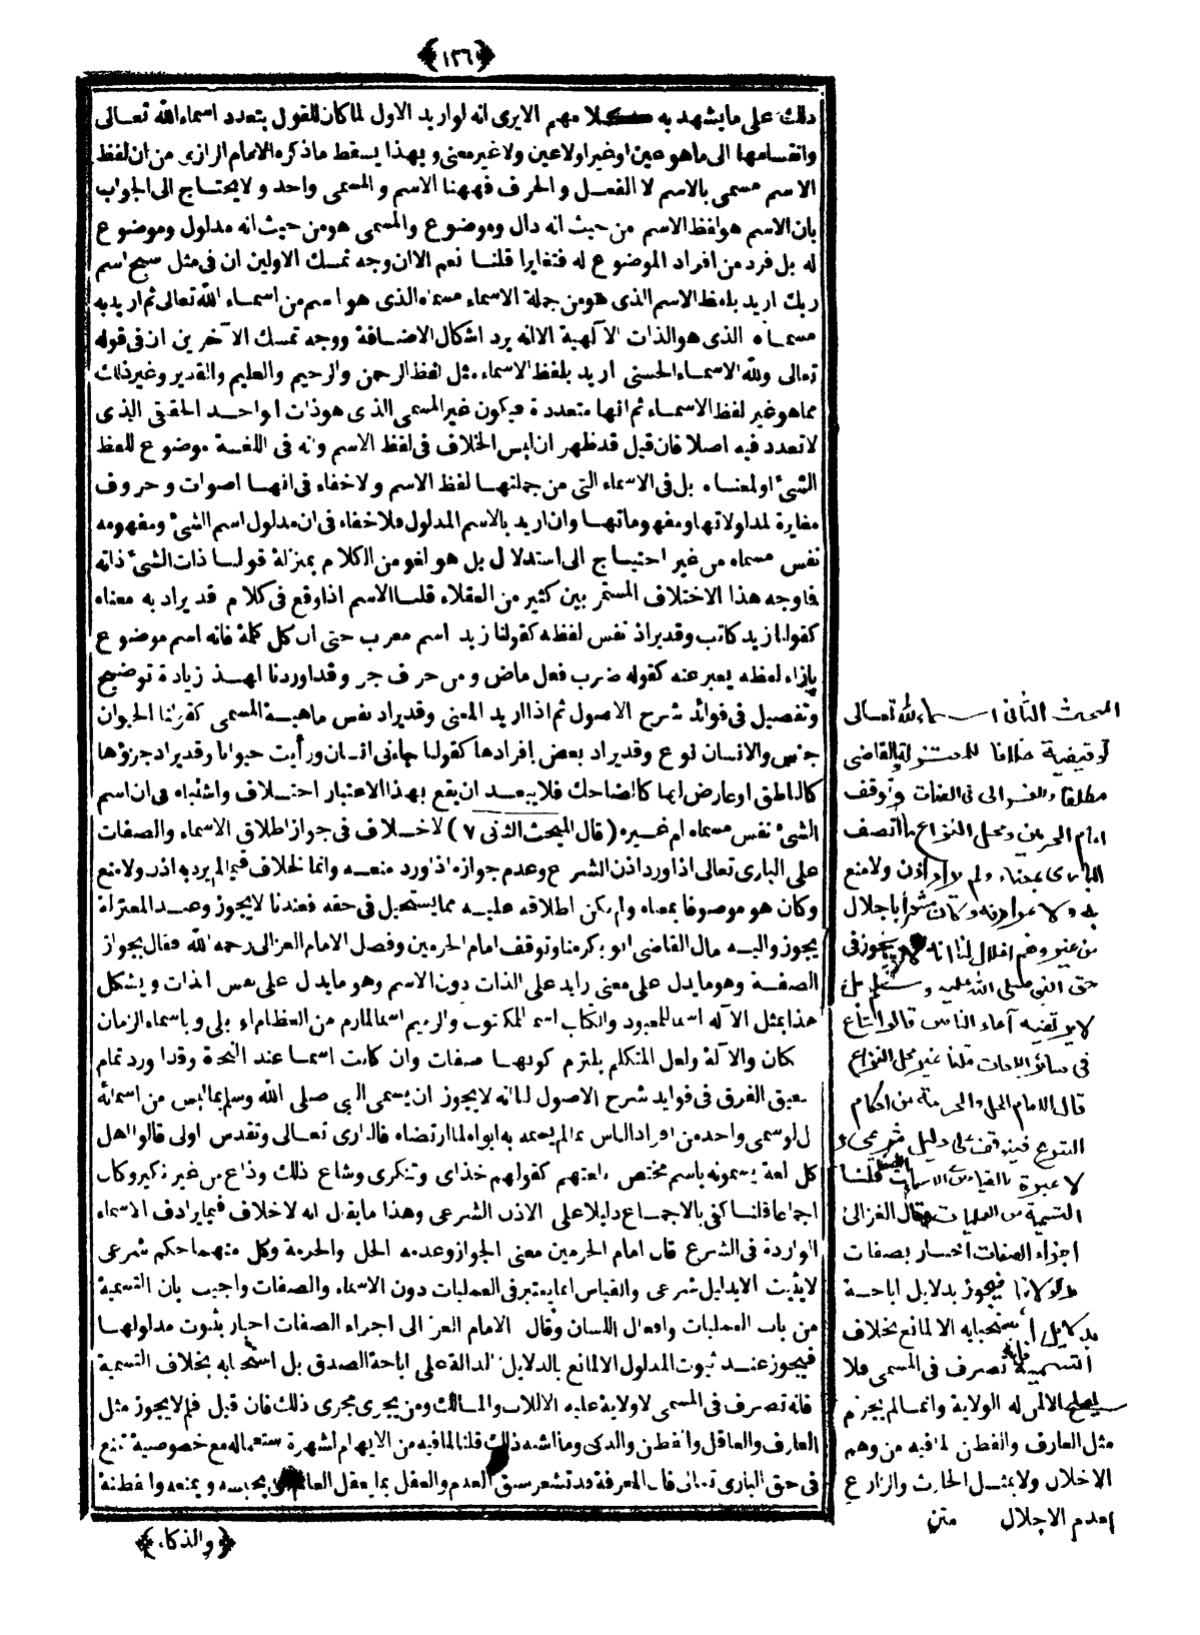 ﴿١٢٦﴾
ذلك على ما يشهد به كلامهم الا يرى انه لو اريد الاول لما كان للقول بتعدد اسماء الله تعالى
وانقسامها الى ما هو عين او غير او لا عين ولا غير معنى وبهذا يسقط ما ذكره الامام الرازى من ان لفظ
الاسم مسمى بالاسم لا الفعل والحرف فههنا الاسم والمسمى واحد ولا يحتاج الى الجواب
بان الاسم هو لفظ الاسم من حيث انه دال وموضوع والمسمى هو من حيث انه مدلول وموضوع
له بل فرد من افراد الموضوع له فتغايرا قلنا نعم الا ان وجه تمسك الاولين ان فى مثل سبح اسم
ربك اريد بلفظ الاسم الذى هو من جملة الاسماء مسماه الذى هو اسم من اسماء الله تعالى ثم اريد به
مسماه الذى هو الذات الا لهية الا انه يرد اشكال الاضافة ووجه تمسك الآخرين ان فى قوله
تعالى ولله الاسماء الحسنى اريد بلفظ الاسماء مثل لفظ الرحمن والرحيم والعليم والقدير وغير ذلك
مما هو غير لفظ الاسماء ثم انها متعددة فيكون غير المسمى الذى هو ذات الواحد الحقيقى الذى
لا تعدد فيه اصلا فان قيل قد ظهر ان ليس الخلاف فى لفظ الاسم وانه فى اللغة موضوع للفظ
الشئ او لمعناه بل فى الاسماء التى من جملتها لفظ الاسم ولا خفاء فى انها اصوات وحروف
مغايرة لمدلولاتها ومفهوماتها وان اريد بالاسم المدلول فلا خفاء فى ان مدلول اسم الشئ ومفهومه
نفس مسماه من غير احتياج الى استدلال بل هو لغو من الكلام بمنزلة قولنا ذات الشئ ذاته
فما وجه هذا الاختلاف المستمر بين كثير من العقلاء قلنا الاسم اذا وقع فى كلام قد يراد به معناه
كقولنا زيد كاتب وقد يراد نفس لفظه كقولنا زيد اسم معرب حتى ان كل كلمة فانه اسم موضوع
بازاء لفظه يعبر عنه كقوله ضرب فعل ماض ومن حرف جر وقد اوردنا لهذا زيادة توضيح
وتفصيل فى فوائد شرح الاصول ثم اذا اريد المعنى وقد يراد نفس ماهية المسمى كقولنا الحيوان
جنس والانسان نوع وقد يراد بعض افرادها كقولنا جاءنى انسان ورأيت حيوانا وقد يراد جزؤها
كالناطق او عارض لها كالضاحك فلا يبعد ان يقع بهذا الاعتبار اختلاف واشتباه فى ان اسم
الشئ نفس مسماه ام غيره (قال المبحث الثانى ٧) لا خلاف فى جواز اطلاق الاسماء والصفات
على البارى تعالى اذا ورد اذن الشرع وعدم جوازه اذا ورد منعه وانما الخلاف فيما لم يرد به اذن ولا منع
وكان هو موصوفا بمعناه ولم يكن اطلاقه عليه مما يستحيل فى حقه فعندنا لا يجوز وعند المعتزلة
يجوز واليه مال القاضى ابو بكر منا وتوقف امام الحرمين وفصل الامام الغزالى رحمه الله فقال بجواز
الصفة وهو ما يدل على معنى زايد على الذات دون الاسم وهو ما يدل على نفس الذات ويشكل
هذا بمثل الآله اسما للمعبود والكتاب اسم للمكتوب والرميم اسما لما رم من العظام اى بلى وباسماء الزمان
كان والآلة ولعل المتكلم يلتزم كونها صفات وان كانت اسما عند النحاة وقد اورد تمام
تحقيق الفرق فى فوايد شرح الاصول لنا انه لا يجوز ان يسمى النبى صلى الله وسلم بما ليس من اسمائه
بل لو سمى واحد من افراد الناس بما لم يسمه به ابواه لما ارتضاه فالبارى تعالى وتقدس اولى قالوا اهل
كل لغة يسمونه باسم مختص بلغتهم كقولهم خذاى وتنكرى وشاع ذلك وذاع من غير نكير وكان
اجماعا قلنا كفى بالاجماع دليلا على الاذن الشرعى وهذا ما يقال انه لا خلاف فيما يرادف الاسماء
الواردة فى الشرع قال امام الحرمين معنى الجواز وعدمه الحل والحرمة وكل منهما حكم شرعى
لا يثبت الا بدليل شرعى والقياس انما يعتبر فى العمليات دون الاسماء والصفات واجيب بان التسمية
من باب العمليات وافعال اللسان وقال الامام الغزالى اجراء الصفات اخبار بثبوت مدلولها
فيجوز عند ثبوت المدلول الا لمانع بالدلايل الدالة على اباحة الصدق بل استحبابه بخلاف التسمية
فانه تصرف فى المسمى لا ولاية عليه الا للاب والمالك ومن يجرى مجرى ذلك فان قيل فلم لا يجوز مثل
العارف والعاقل والفطن والذكى وما اشبه ذلك قلنا لما فيه من الايهام لشهرة استعماله مع خصوصية تمتنع
فى حق البارى تعالى فان المعرفة قد تشعر بسبق العدم والعقل بما يعقل العالم اى يحبسه ويمنعه والفطنة
﴿والذكاء﴾
المبحث الثانى اسماء الله تعالى
توقيفية خلافا للمعتزلة والقاضى
مطلقا وللغزالى فى الصفات وتوقف
امام الحرمين ومحل النزاع ما اتصف
البارى بمعناه ولم يرد اذن ولا منع
به ولا بمرادفه وكان مشعرا باجلال
من غير وهم اخلال لنا انه لا يجوز فى
حق النبى صلى الله عليه وسلم بل
لا يرتضيه آحاد الناس قالوا شاع
فى سائر اللغات قلنا غير محل النزاع
قال الامام الحل والحرمة من احكام
الشرع فيتوقف على دليل شرعى و
لا عبرة بالقياس فى الاسماء قلنا
التسمية من العمليات وقال الغزالى
اجراء الصفات اخبار بصفات
فيجوز بدلايل اباحة
بل استحبابه الا لمانع بخلاف
التسمية فانه تصرف فى المسمى فلا
يصلح الا لمن له الولاية وانما لم يجز م
مثل العارف والفطن لما فيه من وهم
الاخلال ولا بمثل الحارث والزارع
لعدم الاجلال متن